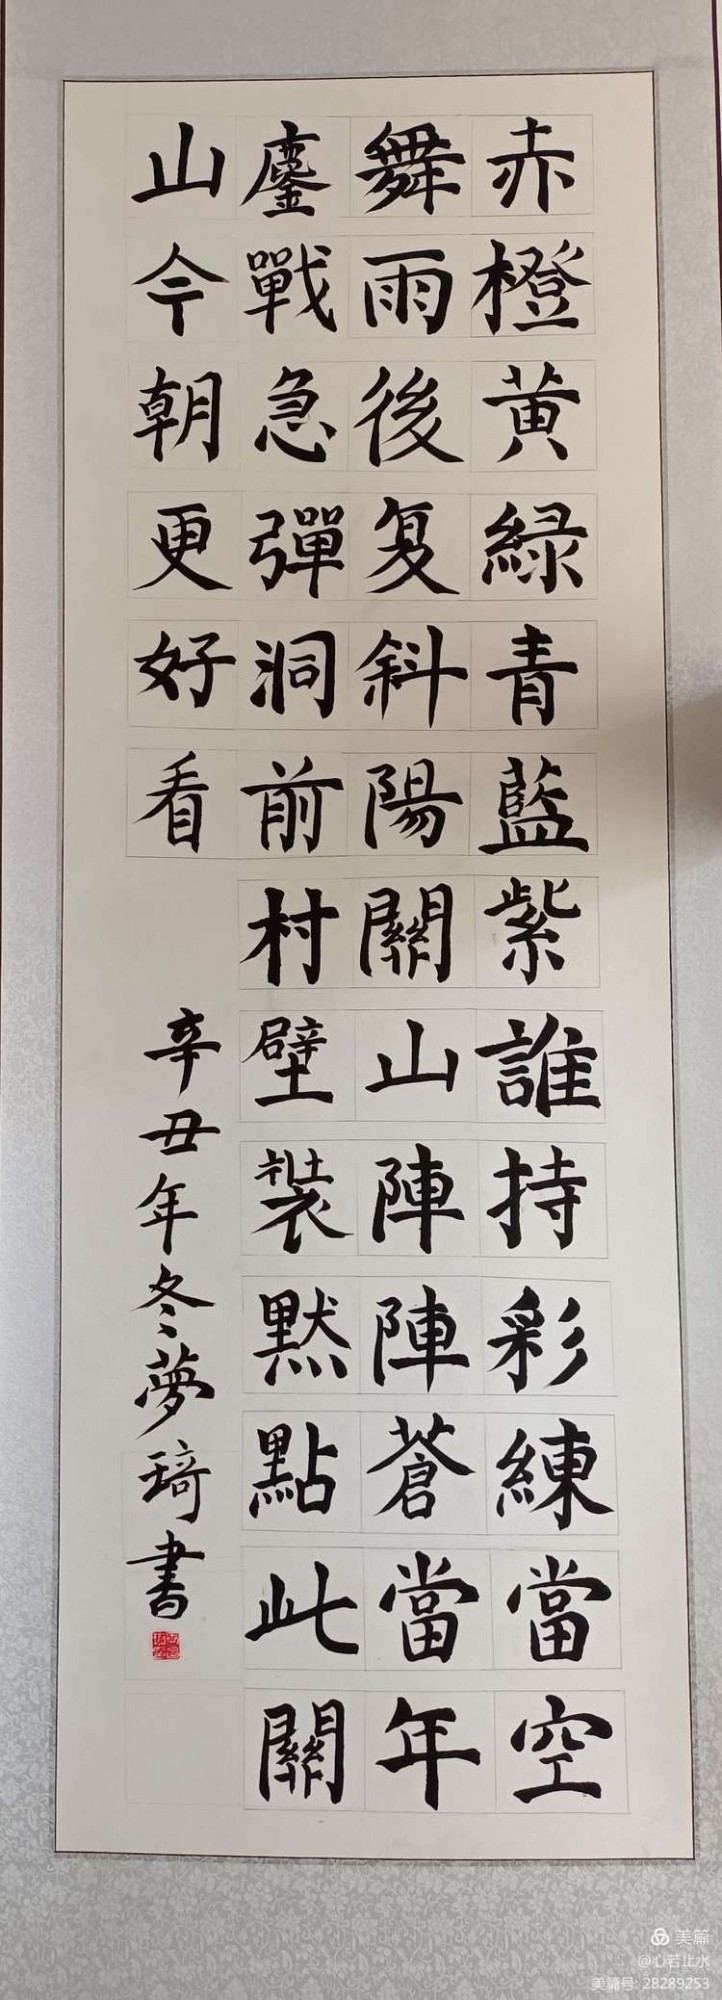 赤橙黄緑青藍紫誰持彩練當空
舞雨後复斜陽關山陣陣蒼當年
鏖戰急彈洞前村壁裝黙點此關
山今朝更好看
辛丑年冬夢琦書
美篇
@心若止水
美篇号: 28289253